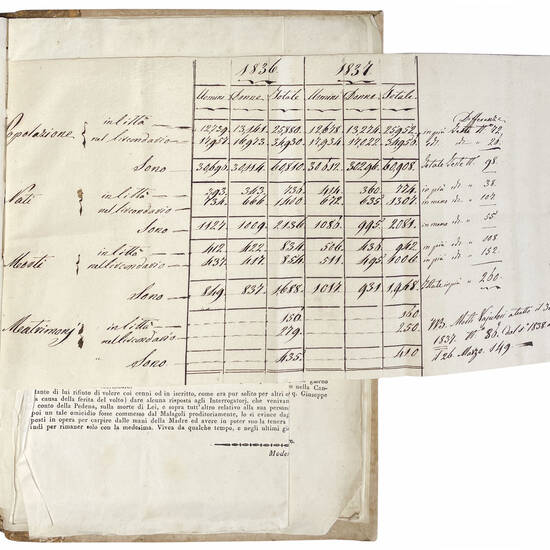 1836. 1837.
Uomini Donne Totale Uomini Donne Totale Differenze
Popolazione { in Città 12739. 13141. 25880. 12678 13274. 25952. in più Teste N° 72.
nel Circondario 17957. 16973. 34930. 17934. 17022. 34956. id. " 26.
Sono 30696. 30114. 60810. 30612. 30296. 60908. Totale Teste N° 98.
Nati { in Città 393. 343. 736. 414. 360. 774. in più id. " 38.
nel Circondario 734. 666. 1400. 672. 635. 1307. in meno id. "
Sono 1127. 1009. 2136. 1086. 995. 2081. in meno id. " 55
Morti { in Città 412. 422. 834. 506. 436. 942 in più id. " 108
nel Circondario 437. 417. 854. 511. 495. 1006. in più id. " 152.
Sono 849. 839. 1688. 1017. 931. 1948. " 260.
Matrimonj { in Città 156 160
nel Circondario 279. 250.
" Sono 435. 410
Morti Vajuolosi a tutto il
1837. N° 86. dal 1° 1838 a
26 Marzo. 149
giorno
tante di lui rifiuto di volere coi cenni od in iscritto, come era pur solito per altri o nella Can-
a causa della ferita del volto) dare alcuna risposta agli Interrogatorj, che venivan q. Giuseppe
conto della Pedena, sulla morte di Lei, e sopra tutt'altro relativo alla sua persona
poi un tale omicidio fosse commesso dal Malagoli proditoriamente, lo si evince dagli
posti in opera per carpire dalle mani della Madre ed avere in poter suo la tenera
indi per rimaner solo con la medesima. Vivea da qualche tempo, e negli ultimi gi
Moden